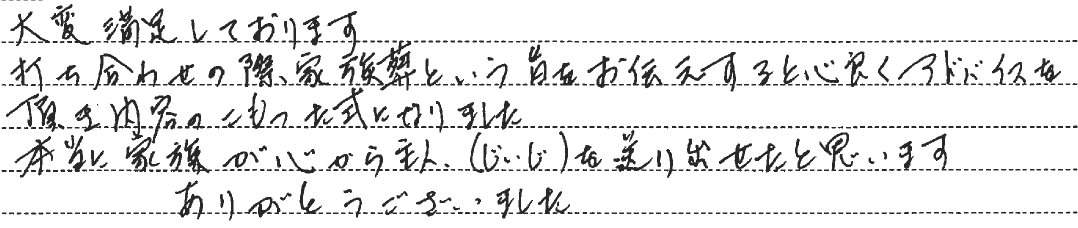 大変満足しております
打ち合わせの際、家族葬という旨をお伝えすると心良くアドバイスを
頂き内容のこもった式になりました
本当に家族が心から主人、(じいじ)を送り出せたと思います
ありがとうございました